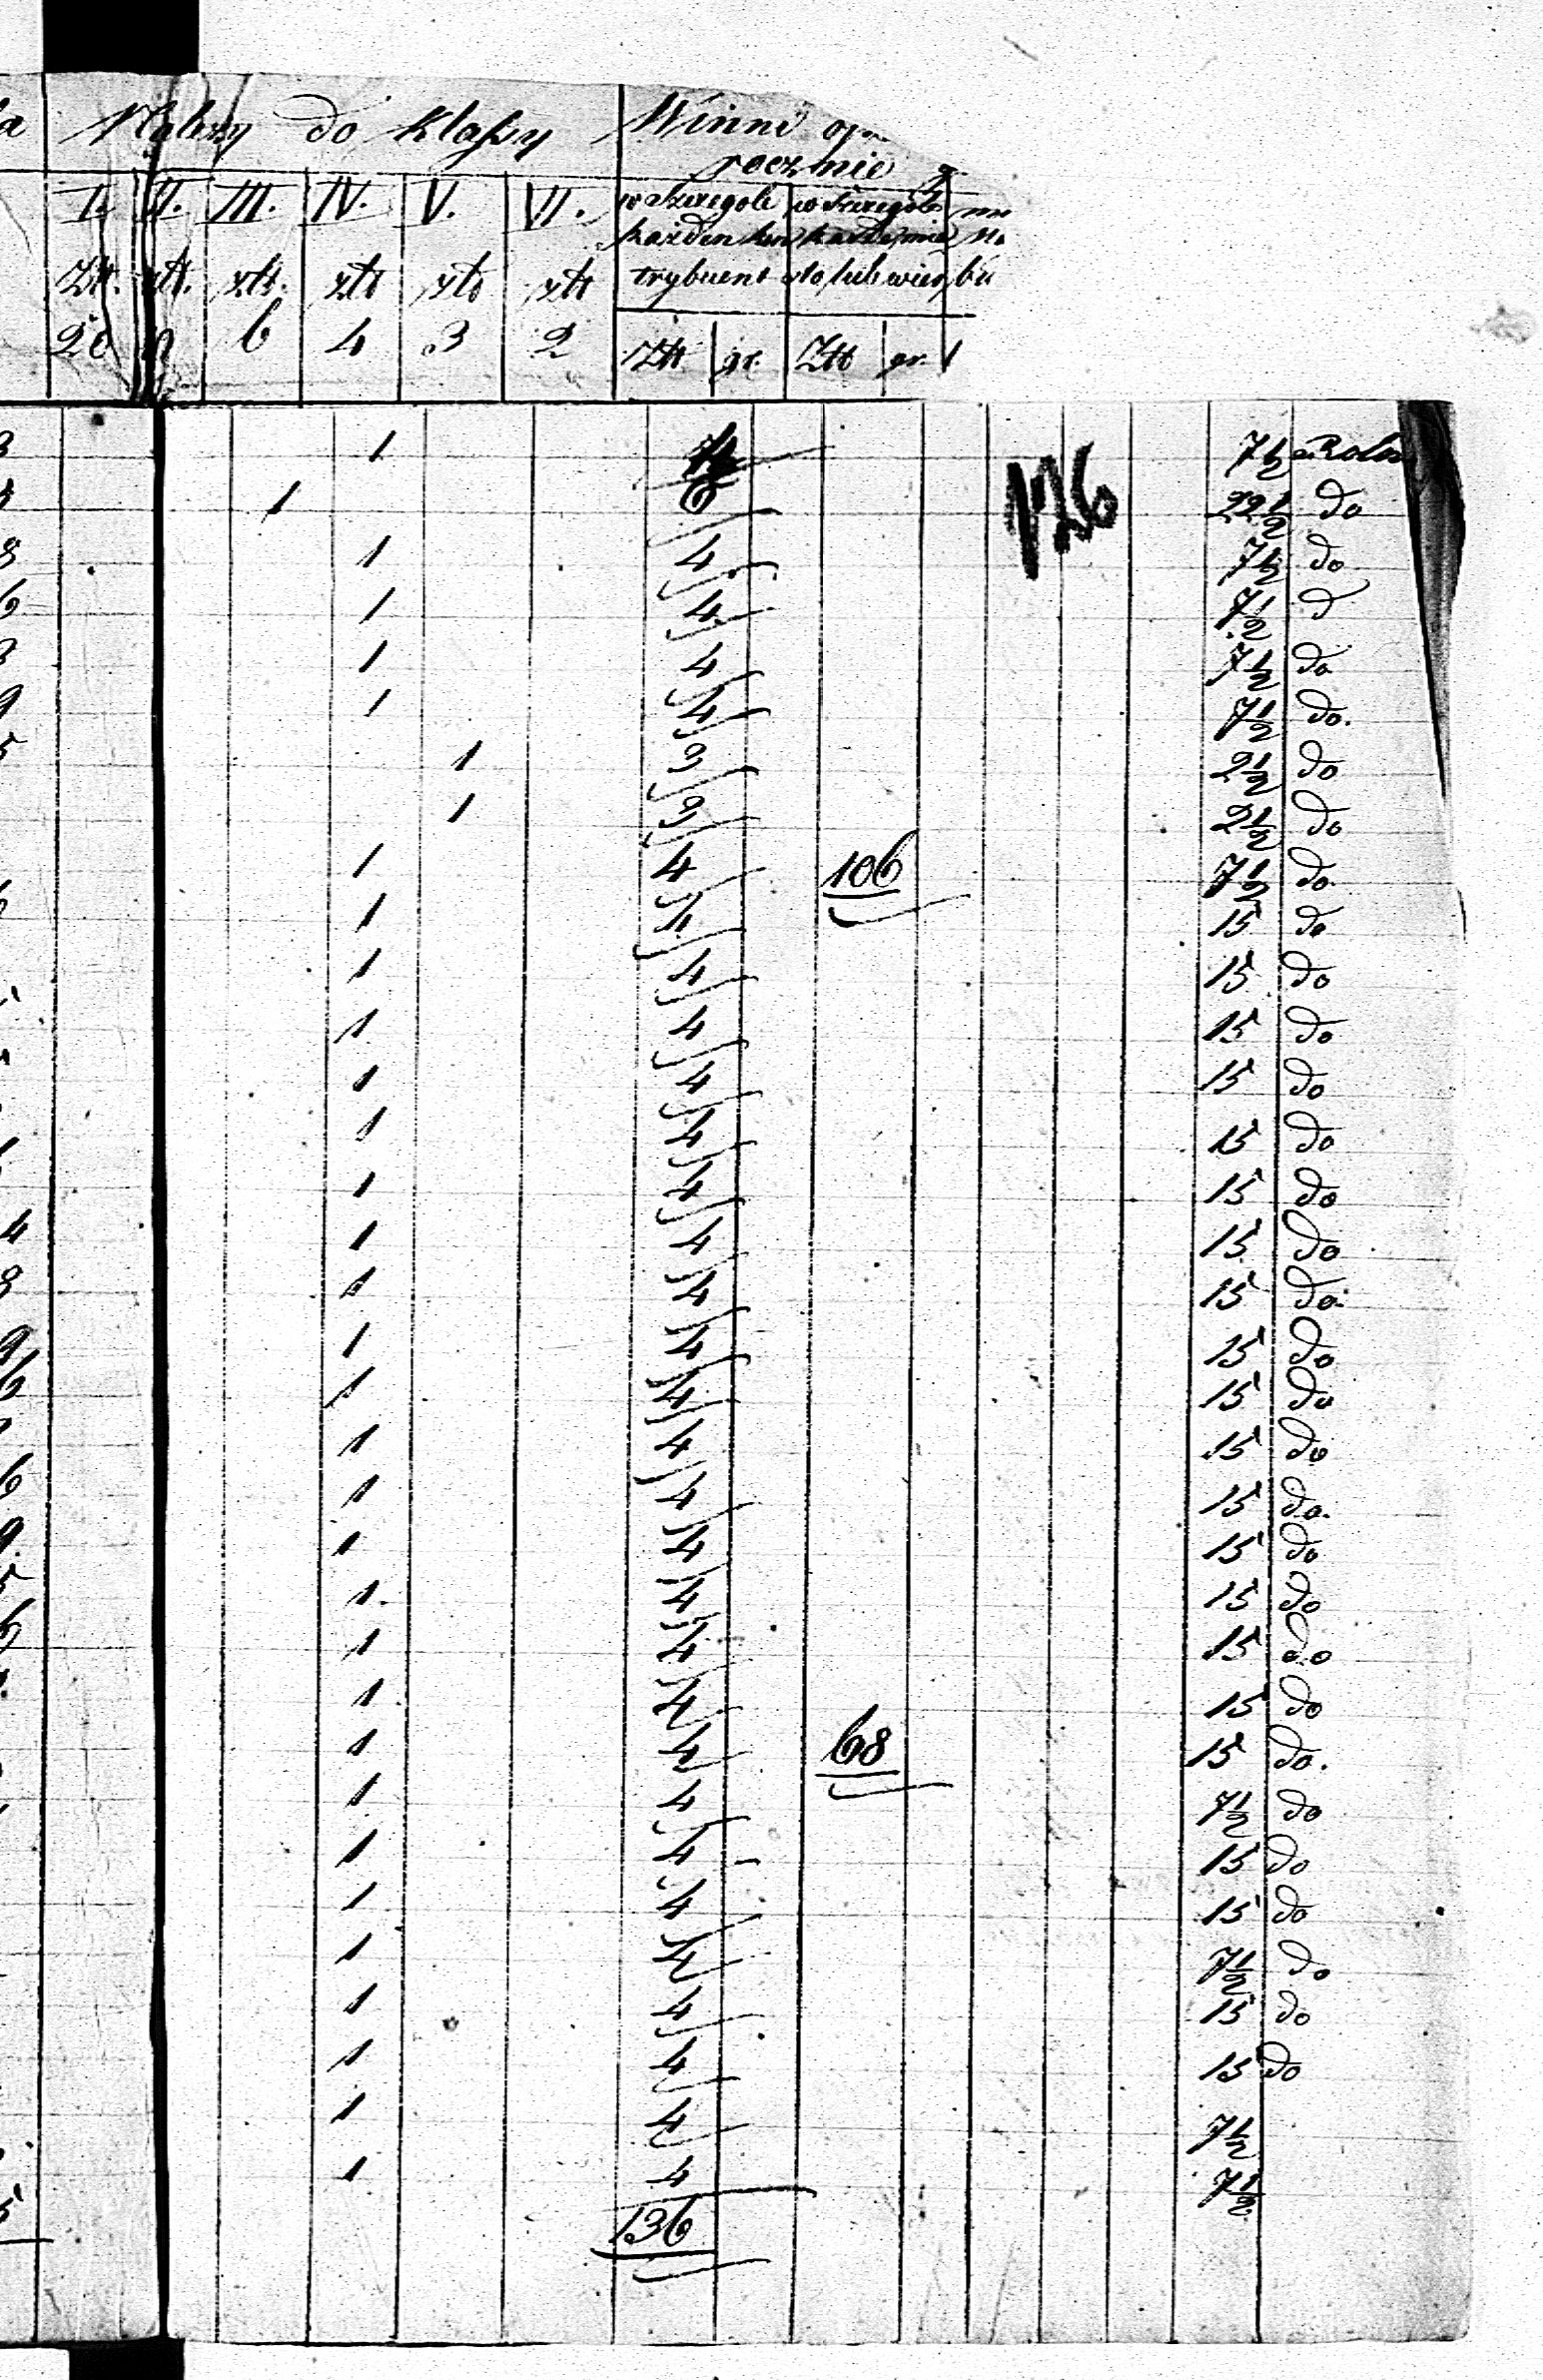 a Należy do klassy Winni
rocznie
I. II. III. IV. V. VI. w szczególe w szczególe
każden kon
trybuent sto lub więc
Zł. zł. zł. zł zł zł
20 6 4 3 2 Zł gr. Zł gr.
3 1 4 7½ Roln
1 6 126 22½ do
8 1 4 7½ do
6 1 4 7½ d
3 1 4 7½ do
9 1 4 7½ do.
5 1 3 2½ do
1 3 2½ do
1 4 106 7½ do
1 4 15 do
1 4 15 do
1 4 15 do
1 4 15 do
1 4 15 do
1 4 15 do
4 1 4 15 do
8 1 4 15 do.
9 1 4 15 do
6 1 4 15 do
1 4 15 do
6 1 4 15 do.
9. 1 4 15 do
5 1. 4 15 do
6 1 4 15 do
1 4 15 do
1 4 68 15 do.
1 4 7½ do
1 4 15 do
1 4 15 do
1 4 7½ do
1 4 15 do
1 4 15 do
1 4 7½
1 4 7½
5 136